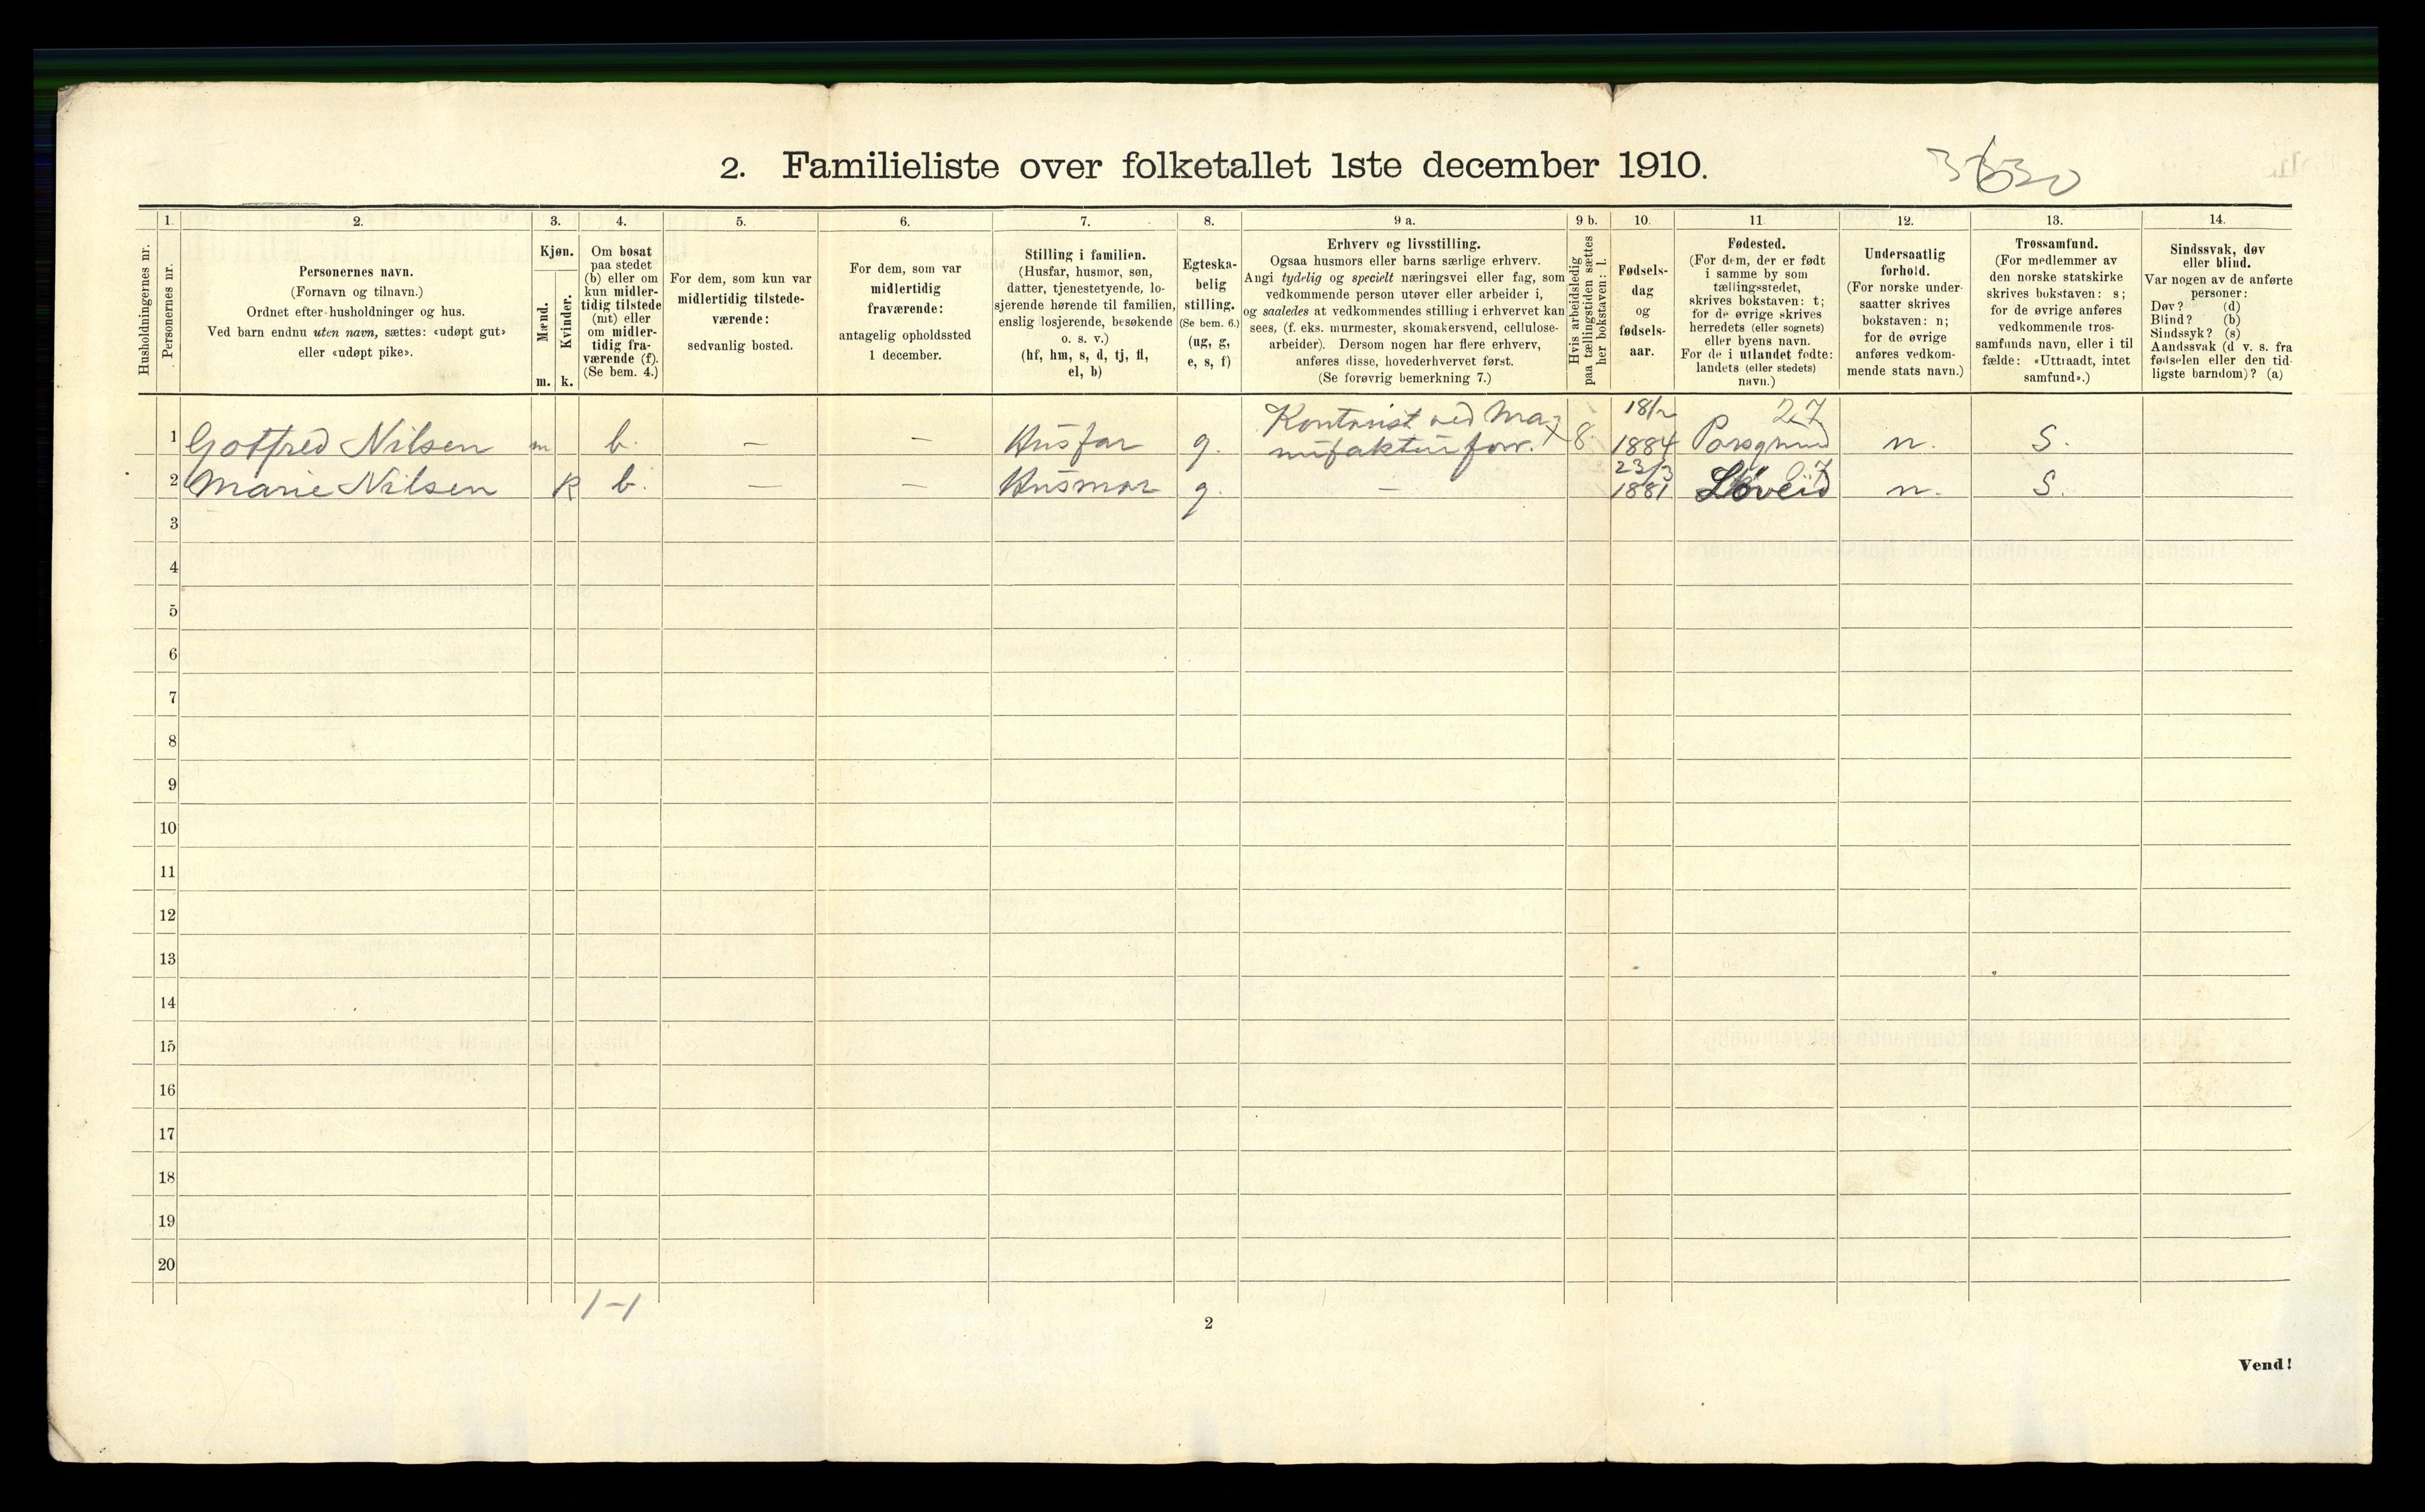 2. Familieliste over folketallet 1ste december 1910.
Husholdningernes nr.
1.
Personernes nr.
2.
Personernes navn.
(Fornavn og tilnavn.)
Ordnet efter husholdninger og hus.
Ved barn endnu uten navn, sættes: «udøpt gut»
eller «udøpt pike».
3.
Kjøn.
Mænd.
Kvinder.
m.
k.
4.
Om bosat
paa stedet
(b) eller om
kun midler-
tidig tilstede
(mt) eller
om midler-
tidig fra-
værende (f).
(Se bem. 4.)
5.
For dem, som kun var
midlertidig tilstede-
værende:
sedvanlig bosted.
6.
For dem, som var
midlertidig
fraværende:
antagelig opholdssted
1 december.
7.
Stilling i familien.
(Husfar, husmor, søn,
datter, tjenestetyende, lo-
sjerende hørende til familien,
enslig losjerende, besøkende
o. s. v.)
(hf, hm, s, d, tj, fl,
el, b)
8.
Egteska-
belig
stilling.
(Se bem. 6.)
(ug, g,
e, s, f)
9 a.
Erhverv og livsstilling.
Ogsaa husmors eller barns særlige erhverv.
Angi tydelig og specielt næringsvei eller fag, som
vedkommende person utøver eller arbeider i,
og saaledes at vedkommendes stilling i erhvervet kan
sees, (f. eks. murmester, skomakersvend, cellulose-
arbeider). Dersom nogen har flere erhverv,
anføres disse, hovederhvervet først.
(Se forøvrig bemerkning 7.)
9 b.
Hvis arbeidsledig
paa tællingstiden sættes
her bokstaven: l.
10.
Fødsels-
dag
og
fødsels-
aar.
11.
Fødested.
(For dem, der er født
i samme by som
tællingsstedet,
skrives bokstaven: t;
for de øvrige skrives
herredets (eller sognets)
eller byens navn.
For de i utlandet fødte:
landets (eller stedets)
navn.)
12.
Undersaatlig
forhold.
(For norske under-
saatter skrives
bokstaven: n;
for de øvrige
anføres vedkom-
mende stats navn.)
13.
Trossamfund.
(For medlemmer av
den norske statskirke
skrives bokstaven: s;
for de øvrige anføres
vedkommende tros-
samfunds navn, eller i til
fælde: «Uttraadt, intet
samfund».)
14.
Sindssvak, døv
eller blind.
Var nogen av de anførte
personer:
Døv? (d)
Blind? (b)
Sindssyk? (s)
Aandssvak (d v. s. fra
fødselen eller den tid-
ligste barndom)? (a)
1 Gotfred Nilsen m b. — — Husfar g. Kontorist ved Ma-
nufakturforr. X 8 18/2 1884 27 Porsgrund n. S.
2 Marie Nilsen k b. — — Husmor g. — 23/3 1881 Løveid n. S.
3
4
5
6
7
8
9
10
11
12
13
14
15
16
17
18
19
20
1-1
2
Vend!